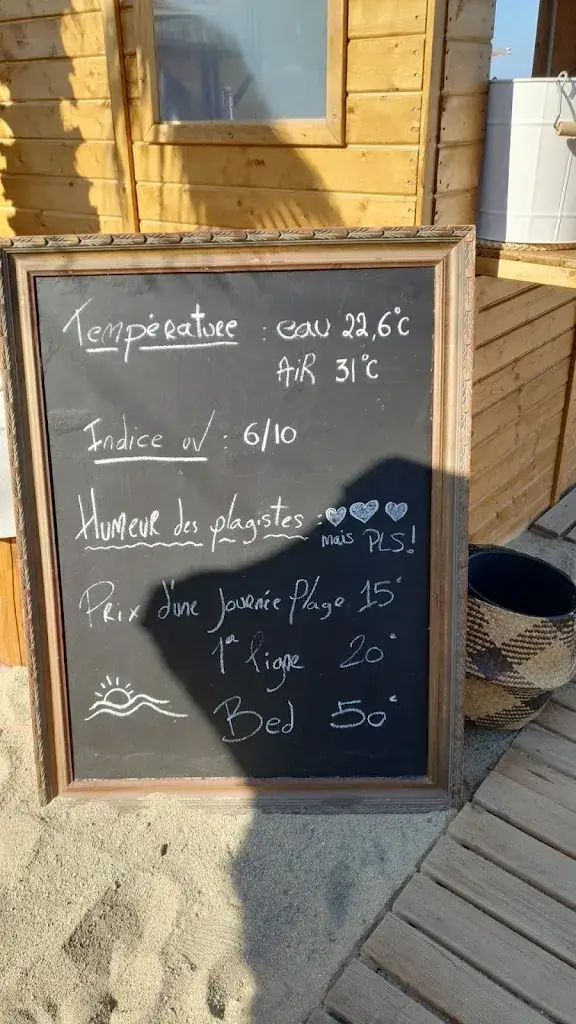 Température : eau 22,6°c
AiR 31°c
Indice UV : 6/10
Humeur des plagistes : ♡♡♡
mais PLS!
Prix d'une Journée Plage 15€
1e ligne 20€
Bed 50€